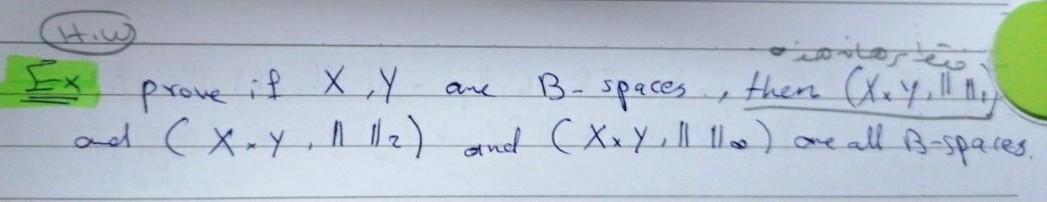 H.W
Ex prove if X, Y are B-spaces, then (X×Y, || ||₁)
and (X×Y, || ||₂) and (X×Y, || ||∞) are all B-spaces.